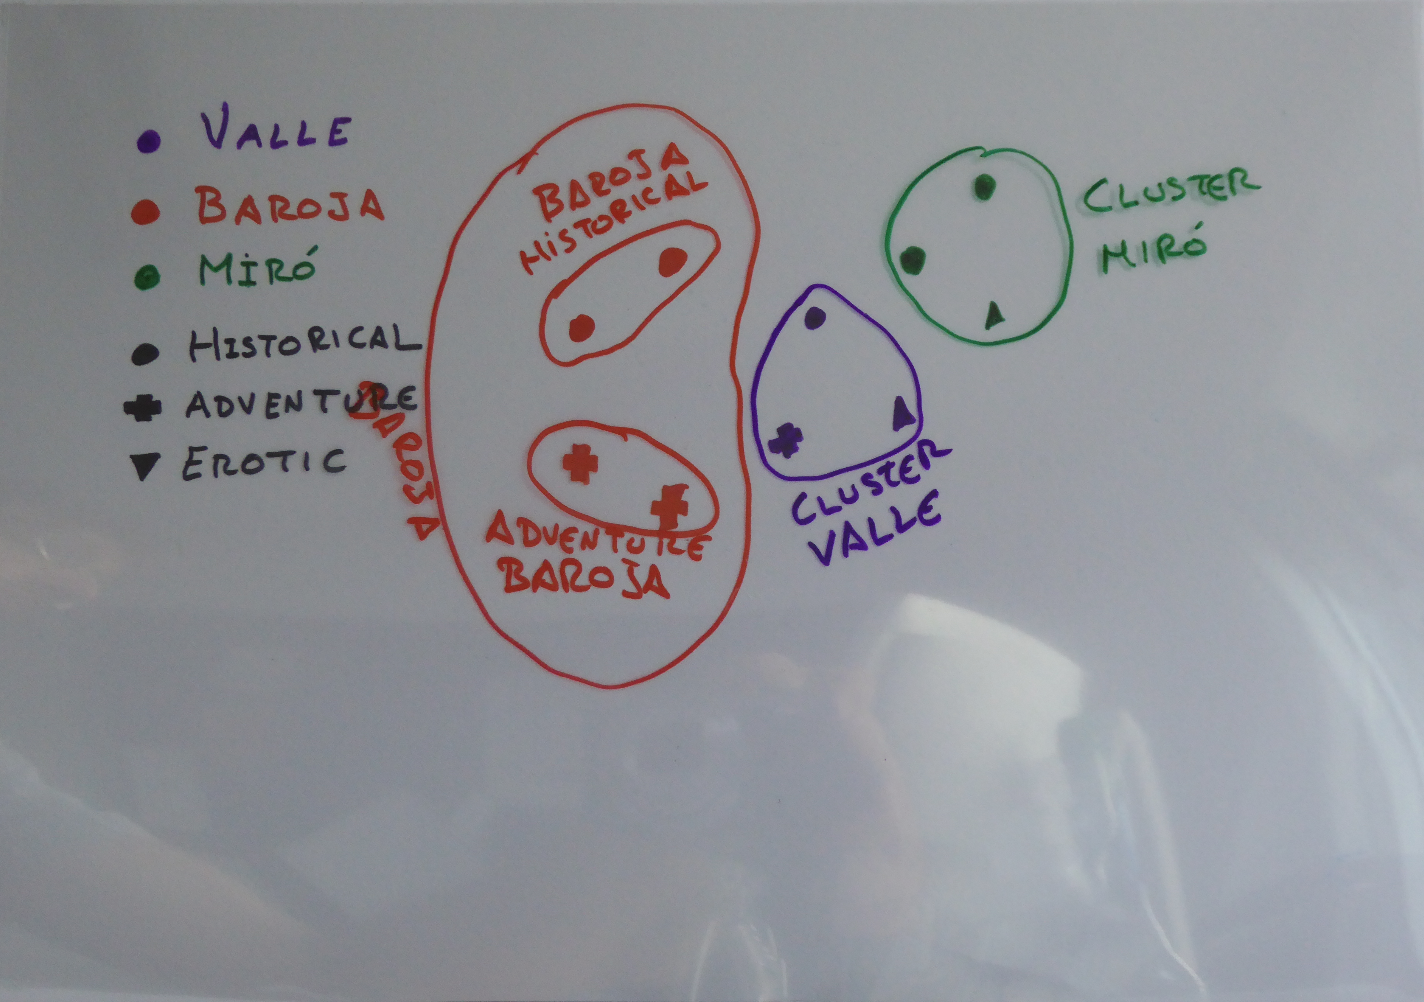 VALLE
BAROJA
MIRÓ
HISTORICAL
ADVENTURE
EROTIC
BAROJA
BAROJA
HISTORICAL
ADVENTURE
BAROJA
CLUSTER
VALLE
CLUSTER
MIRÓ